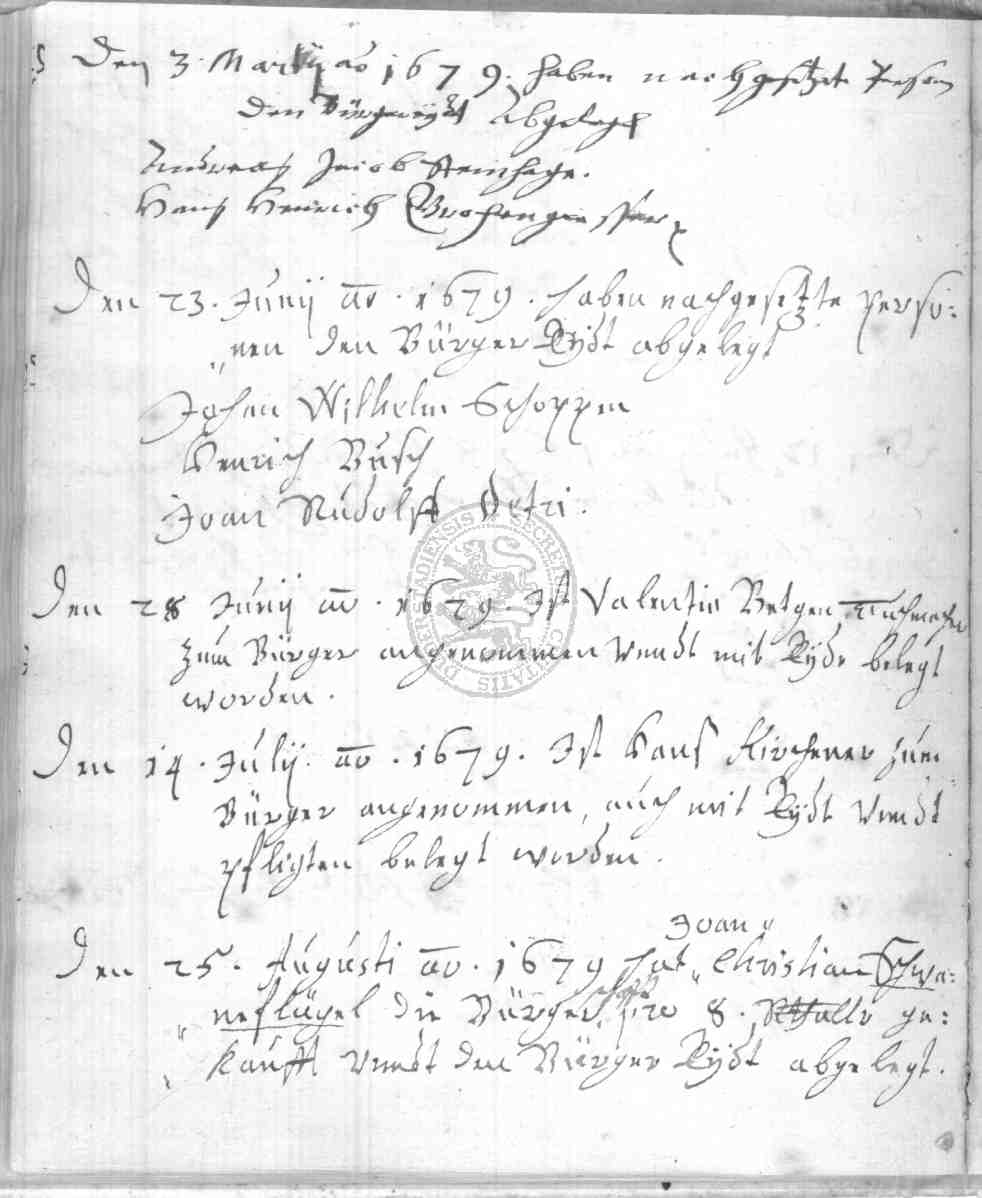 Den 3. Martij ao 1679. haben nachgesetzte Person
den Bürgereydt Abgelegt
Andreas Jacob Steinhage.
Hans Henrich
Den 23. Junij ao. 1679. haben nachgesetzte Perso:
nen den Bürger Eydt abgelegt
Johan Wilhelm Schoppen
Henrich Busch
Joan Rudolff Petri.
Den 28 Junij ao. 1679. Ist Valentin Betgen,
zum Bürger angenommen Vnndt mit Eyde belegt
worden.
Den 14. Julij. ao. 1679. Ist Hans Kirchener zum
Bürger angenommen, auch mit Eydt Vnndt
pfligten belegt worden.
Joan
Den 25. Augusti ao. 1679 hat Christian Schwa:
neflügel die Bürger schafft pro 8. Rthallr ge:
kaufft Vnndt den Bürger Eydt abgelegt.
SECRETUM CIVITATIS DUDERSTADIENSIS